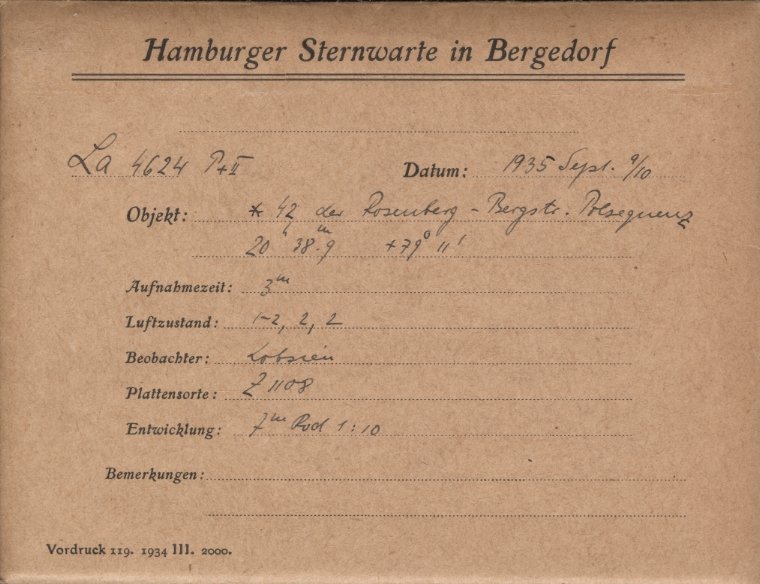 Hamburger Sternwarte in Bergedorf
La 4624 P+II Datum: 1935 Sept. 9/10
Objekt: * 42 der Rosenberg - Bergstr. Polsequenz
20h 38.m9 +79° 11'
Aufnahmezeit: 3m
Luftzustand: 1-2, 2, 2
Beobachter: Lobsien
Plattensorte: Z 1108
Entwicklung: 7m Rod 1:10
Bemerkungen:
Vordruck 119. 1934 III. 2000.